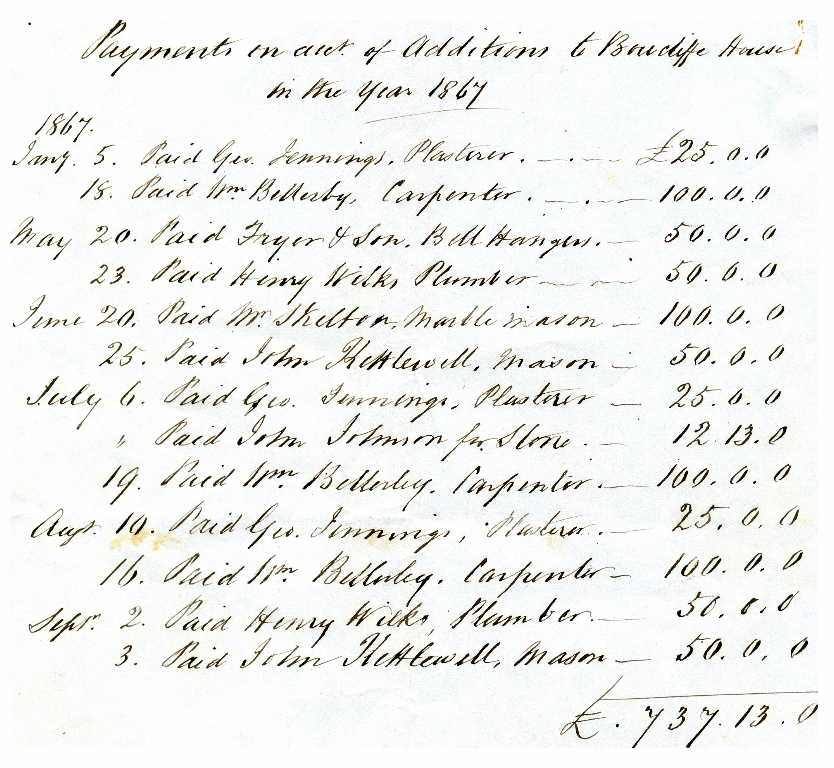 Payments on acct. of Additions to Bowcliffe House
in the Year 1867
1867.
Jany. 5. Paid Geo. Jennings, Plasterer. — . — £25. 0. 0
18. Paid Wm Bellerby, Carpenter. — . — 100. 0. 0
May 20. Paid Fryer & Son. Bell Hangers. — 50. 0. 0
23. Paid Henry Wilks Plumber — — 50. 0. 0
June 20. Paid Mr. Skelton, Marble mason — 100. 0. 0
25. Paid John Kettlewell, Mason — 50. 0. 0
July 6. Paid Geo. Jennings, Plasterer — 25. 0. 0
" Paid John Johnson for Stone. — 12. 13. 0
19. Paid Wm Bellerby. Carpenter. — 100. 0. 0
Augt. 10. Paid Geo. Jennings, Plasterer. — 25. 0. 0
16. Paid Wm Bellerby. Carpenter — 100. 0. 0
Sept. 2. Paid Henry Wilks, Plumber. — 50. 0. 0
3. Paid John Kettlewell, Mason — 50. 0. 0
£. 737. 13. 0